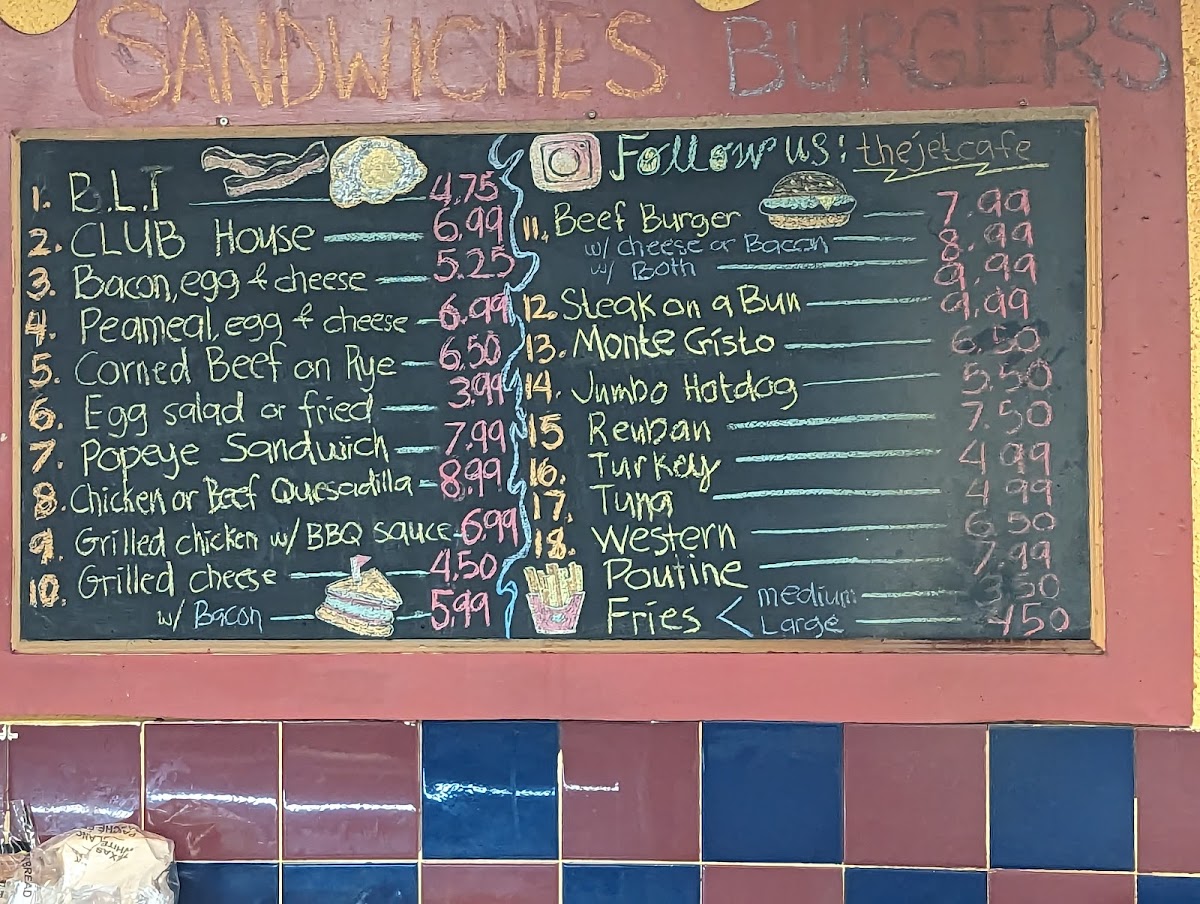 SANDWICHES BURGERS
1. B.L.T 4.75
2. CLUB House 6.99
3. Bacon, egg & cheese 5.25
4. Peameal, egg & cheese 6.99
5. Corned Beef on Rye 6.50
6. Egg salad or fried 3.99
7. Popeye Sandwich 7.99
8. Chicken or Beef Quesadilla 8.99
9. Grilled chicken w/ BBQ sauce 6.99
10. Grilled cheese 4.50
w/ Bacon 5.99
Follow us: thejetcafe
11. Beef Burger 7.99
w/ cheese or Bacon 8.99
w/ Both 9.99
12. Steak on a Bun 9.99
13. Monte Cristo 6.50
14. Jumbo Hotdog 5.50
15 Reuban 7.50
16. Turkey 4.99
17. Tuna 4.99
18. Western 6.50
Poutine 7.99
Fries < medium 3.50
Large 450